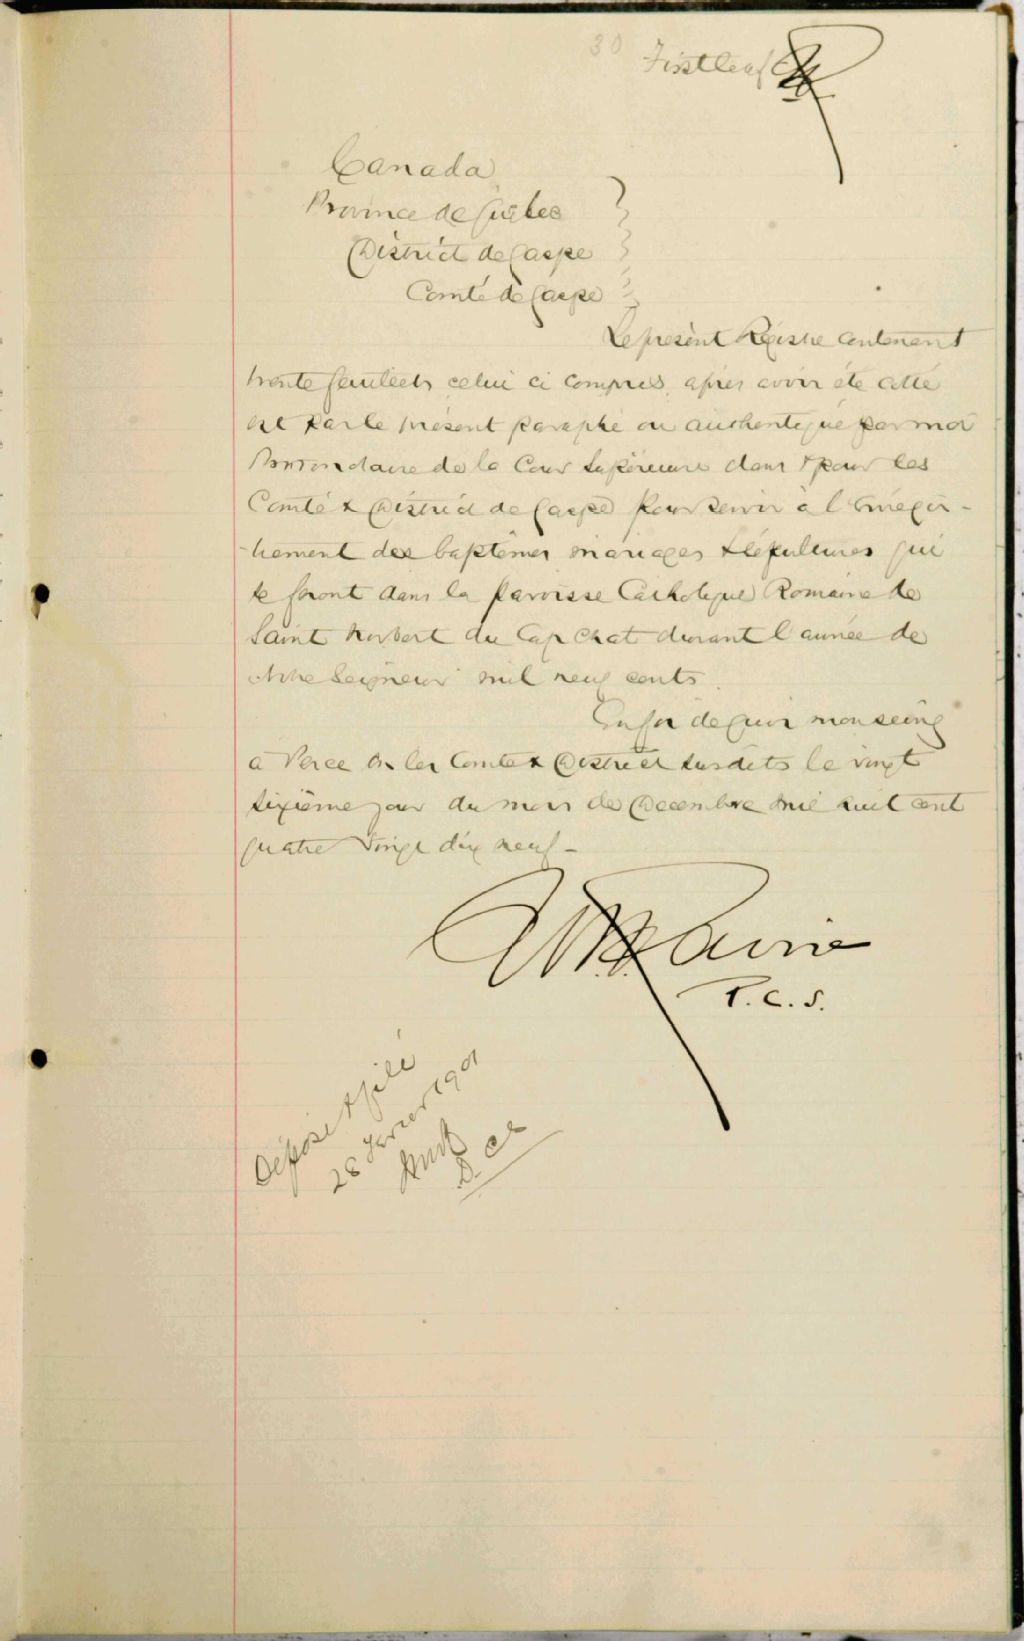 30 First leaf
Canada
Province de Québec
District de Gaspé
Comté de Gaspé
Le présent Régistre contenant
trente feuillets celui ci compris, après avoir été cotté
est par le présent paraphé ou authentiqué par moi
Protonotaire de la Cour Supérieure dans & pour les
Comté & District de Gaspé pour servir à l'Enrégis-
-trement des baptêmes mariages & sépultures qui
se feront dans la paroisse Catholique Romaine de
Saint Norbert du Cap Chat durant l'année de
Notre Seigneur mil neuf cents.
En foi de quoi mon seing
à Percé en les Comté & District susdits le vingt
sixième jour du mois de Décembre mil huit cent
quatre vingt dix neuf -
P.C.S.
Déposé & filé
28 Janvier 1901